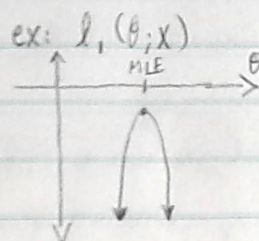 ex: l, (θ;x)
MLE
θ